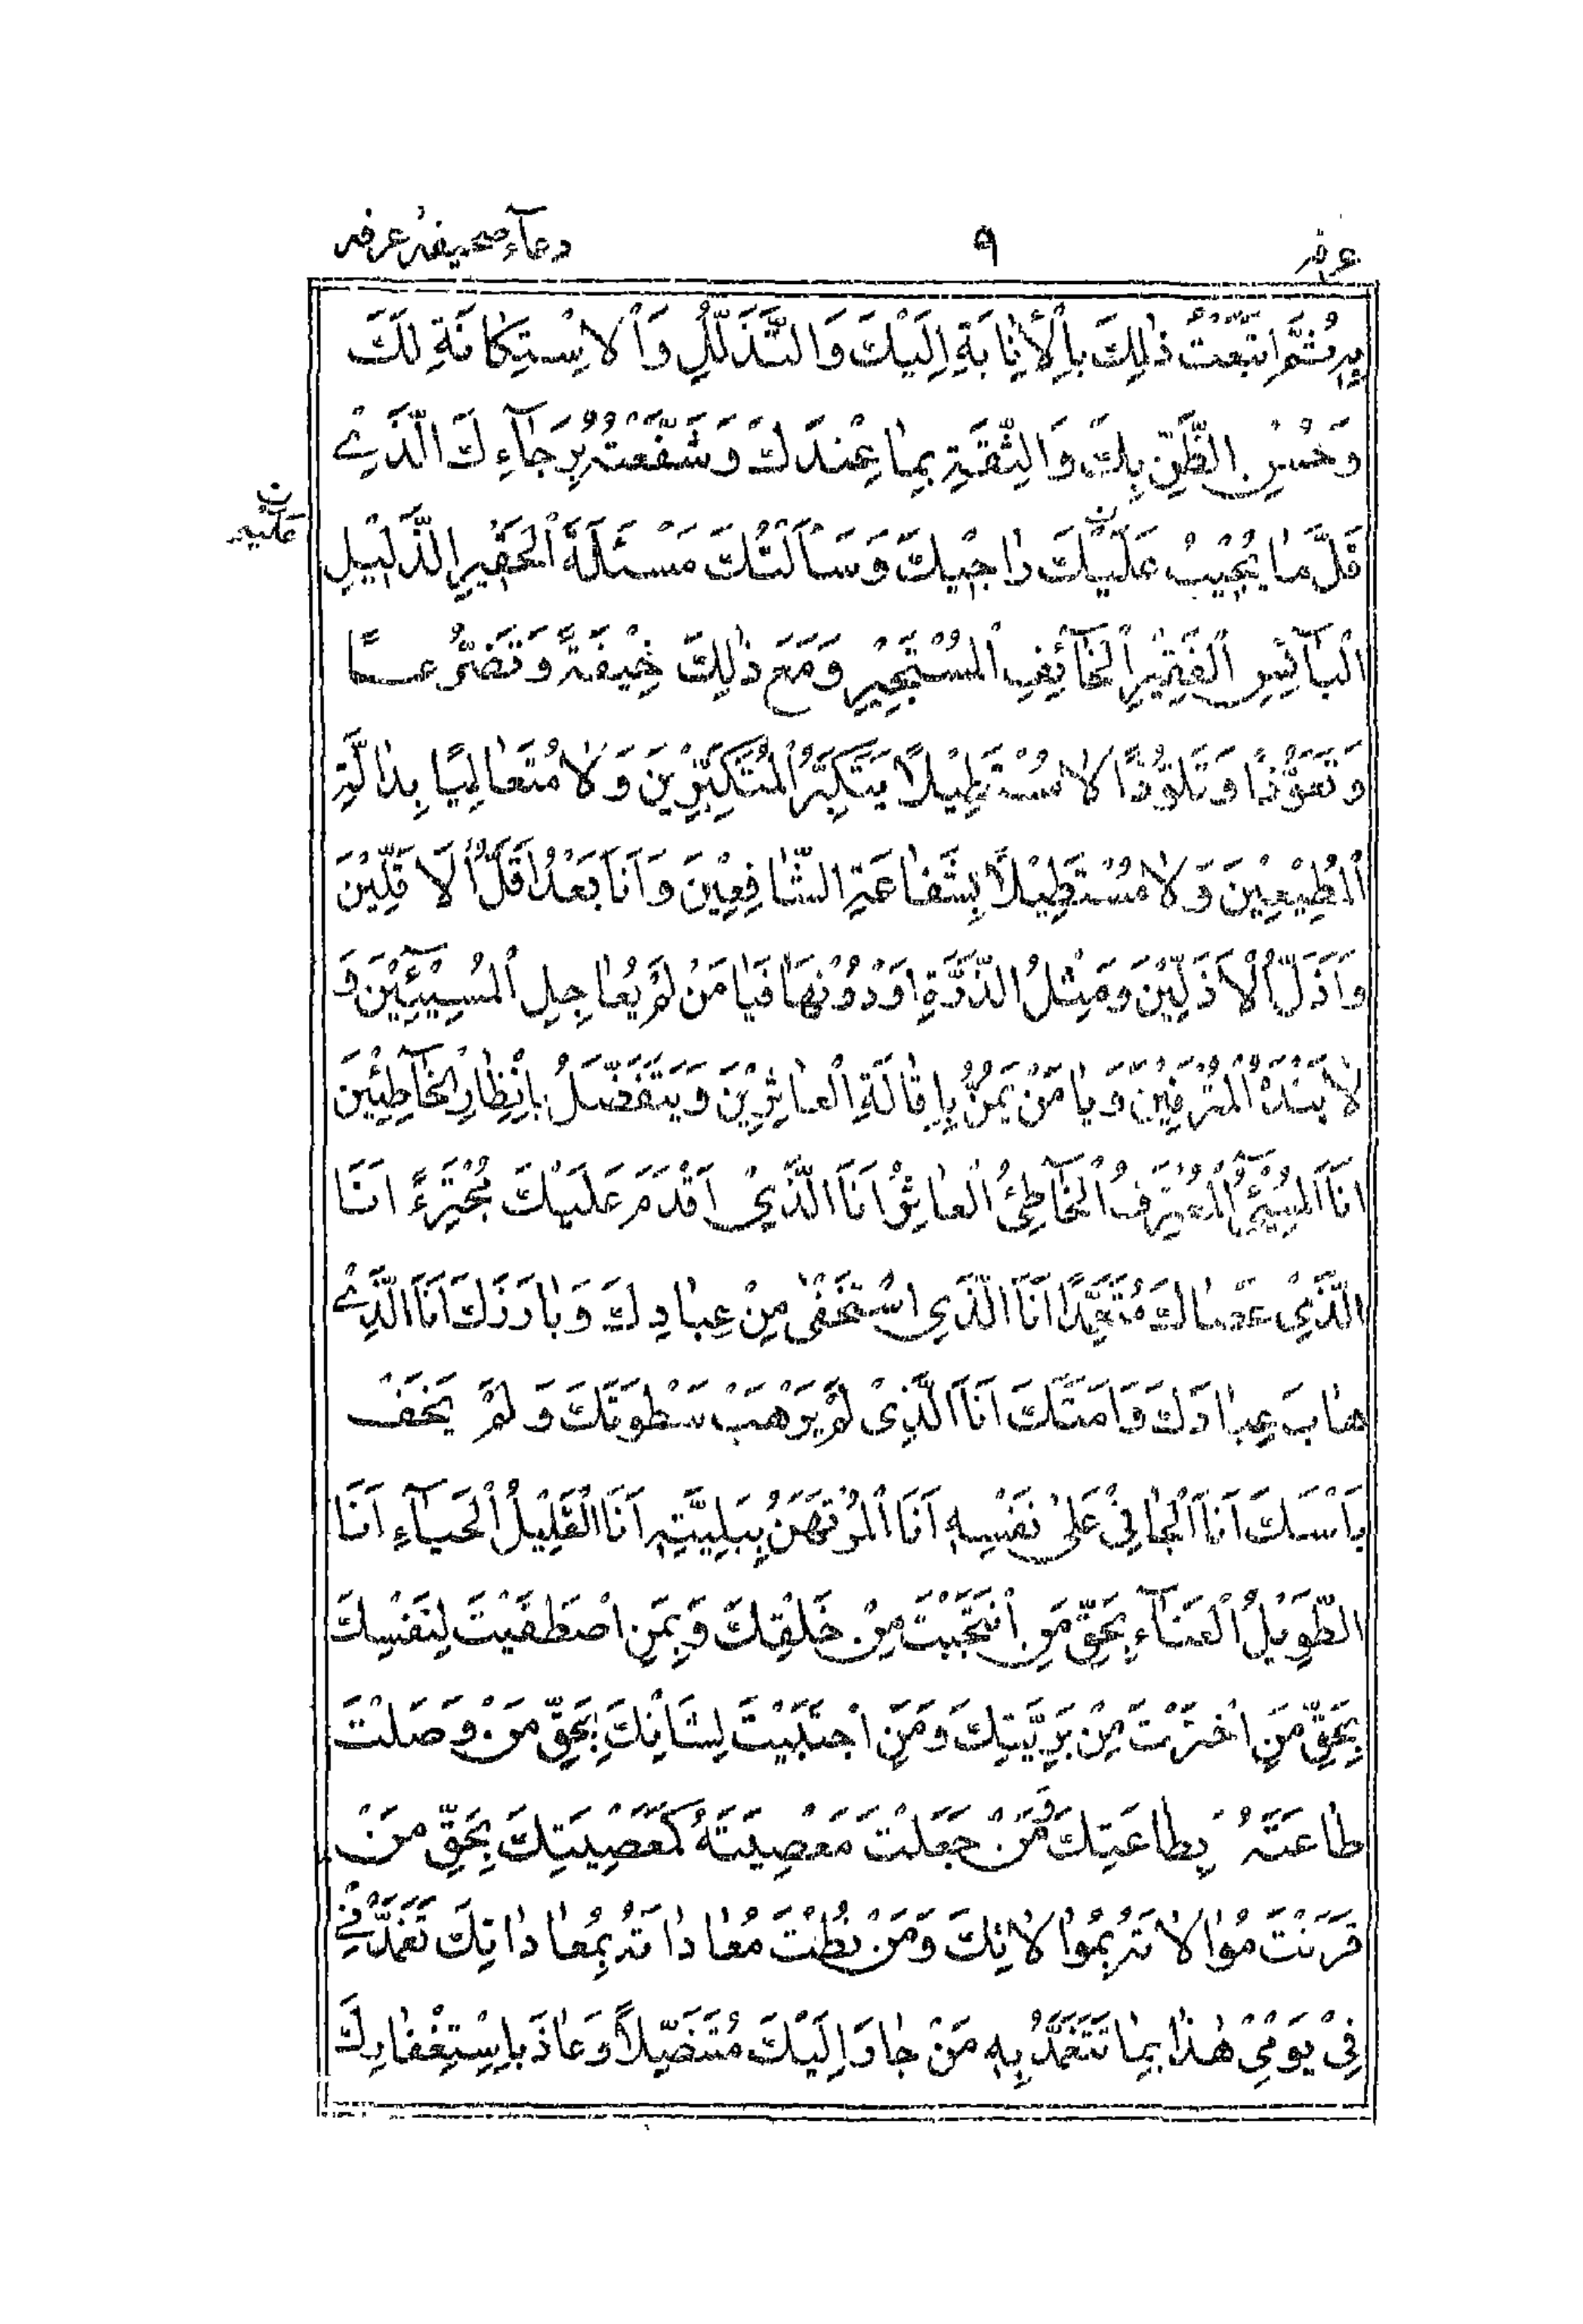 عرفه ۹ دعآء صحیفهٔ عرفه
بِهِ ثُمَّ اتَّبَعْتُ ذٰلِكَ بِاْلْأِنٰابَةِ اِلَيْكَ وَالتَّذَلُّلِ وَاْلاِسْتِكٰانَةِ لَكَ
وَحُسْنِ الظَّنِّ بِكَ وَالثِّقَةِ بِمٰا عِنْدَكَ وَشَفَّعْتُهُ بِرَجٰآءِكَ الَّذَیْ
قَلَّ مٰا يُجِيْبُ عَلَيْكَ رٰاجْيكَ وَسَاَلْتُكَ مَسْئَلَةَ اْلحَقْيرِ الذَّلْيلِ
عَلَيْهِ ن
اْلبٰآئِسِ اْلفَقِيْرِ اْلخٰآئِفِ اْلمُسْتَجْيرِ وَمَعَ ذٰلِكَ خِيْفَةً وَتَضَرُّعًا
وَتَعَوُّذًا وَتَلَوُّذًا لٰا مُسْتَطِيْلًا بِتَكَبُّرِ اْلمُتَكَبِّرْينَ وَلٰا مُتَعٰالِيًا بِدٰالَّةِ
اْلمُطِيْعِيْنَ وَلٰا مُسْتَطِيْلًا بِشَفٰاعَةِ الشّٰافِعِيْنَ وَاَنَا بَعْدُ اَقَلُّ اْلَاقَلِّيْنَ
وَاَذَلُّ اْلَاذَلِّيْنَ وَمِثْلُ الذَّرَّةِ اَوْدُوْنَهٰا فَيٰا مَنْ لَمْ يُعٰاجِلِ اْلمُسِيْئِيْنَ وَ
لٰا يَنْدَهُ اْلمُتْرَفِيْنَ وَيٰا مَنْ يَمُنُّ بِاِقٰالَةِ اْلعٰاثِرِيْنَ وَيَتَفَضَّلُ بِاِنْظٰارِ اْلخٰآطِئِيْنَ
اَنَا اْلمُسِيْٓئُ اْلمُعْتَرِفُ اْلخٰآطِئُ اْلعٰاثِرُ اَنَا الَّذِيْ اَقْدَمَ عَلَيْكَ مُجْتَرِءً اَنَا
الَّذِيْ عَصٰاكَ مُتَعَمِّدًا اَنَا الَّذَي اسْتَخْفٰى مِنْ عِبٰادِكَ وَبٰارَزَكَ اَنَا الَّذِیْ
هٰابَ عِبٰادَكَ وَاَمَنَكَ اَنَا الَّذِىْ لَمْ يَرْهَبْ سَطْوَتَكَ وَلَمْ يَخَفْ
بَاْسَكَ اَنَا اْلجٰانِيْ عَلٰى نَفْسِهِ اَنَا اْلمُرْتَهَنُ بِبَلِيَّتِهِ اَنَا اْلقَلِيْلُ اْلحَيٰآءِ اَنَا
الطَّوِيْلُ اْلعَنٰآءِ بِحَقِّ مَنِ اْنتَجَبْتَ مِنْ خَلْقِكَ وَبِمَنِ اصْطَفَيْتَ لِنَفْسِكَ
بِحَقِّ مَنِ اخْتَرْتَ مِنْ بَرِيَّتِكَ وَمَنِ اجْتَبَيْتَ لِشَاْنِكَ بِحَقِّ مَنْ وَصَلْتَ
طٰاعَتَهُ بِطٰاعَتِكَ وَمَنْ جَعَلْتَ مَعْصِيَتَهُ كَمَعْصِيَتِكَ بِحَقِّ مَنْ
قَرَنْتَ مُوٰالٰاتَهُ بِمُوٰالٰاتِكَ وَمَنْ نُطْتَ مُعٰادٰاتَهُ بِمُعٰادٰاتِكَ تَغَمَّدْنِیْ
فِيْ يَوْمِيْ هٰذٰا بِمٰا تَتَغَمَّدُ بِهِ مَنْ جٰارَ اِلَيْكَ مُتَنَصِّلًا وَعٰاذَ بِاِسْتِغْفٰارِكَ